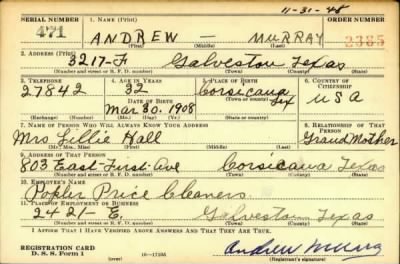 11-31-48
SERIAL NUMBER 1. NAME (Print)
471 ANDREW — MURRAY 2385
(First) (Middle) (Last)
2. ADDRESS (Print)
3217-F Galveston Texas
(Number and street or R. F. D. number) (Town) (County) (State)
3. TELEPHONE 4. AGE IN YEARS 5. PLACE OF BIRTH 6. COUNTRY OF CITIZENSHIP
27842 32 Corsicana
DATE OF BIRTH (Town or county) Tex USA
Mar 30 1908
(Exchange) (Number) (Mo.) (Day) (Yr.) (State or country)
7. NAME OF PERSON WHO WILL ALWAYS KNOW YOUR ADDRESS 8. RELATIONSHIP OF THAT PERSON
Mrs Lillie Hall Grand Mother
(Mr., Mrs., Miss) (First) (Middle) (Last)
9. ADDRESS OF THAT PERSON
803 East First Ave Corsicana Texas
(Number and street or R. F. D. number) (Town) (County) (State)
10. EMPLOYER'S NAME
Price Cleaners
11. PLACE OF EMPLOYMENT OR BUSINESS
2421- E. Galveston Texas
(Number and street or R. F. D. number) (Town) (County) (State)
I AFFIRM THAT I HAVE VERIFIED ABOVE ANSWERS AND THAT THEY ARE TRUE.
REGISTRATION CARD
D. S. S. Form 1 Andrew Murray
(Registrant's signature)